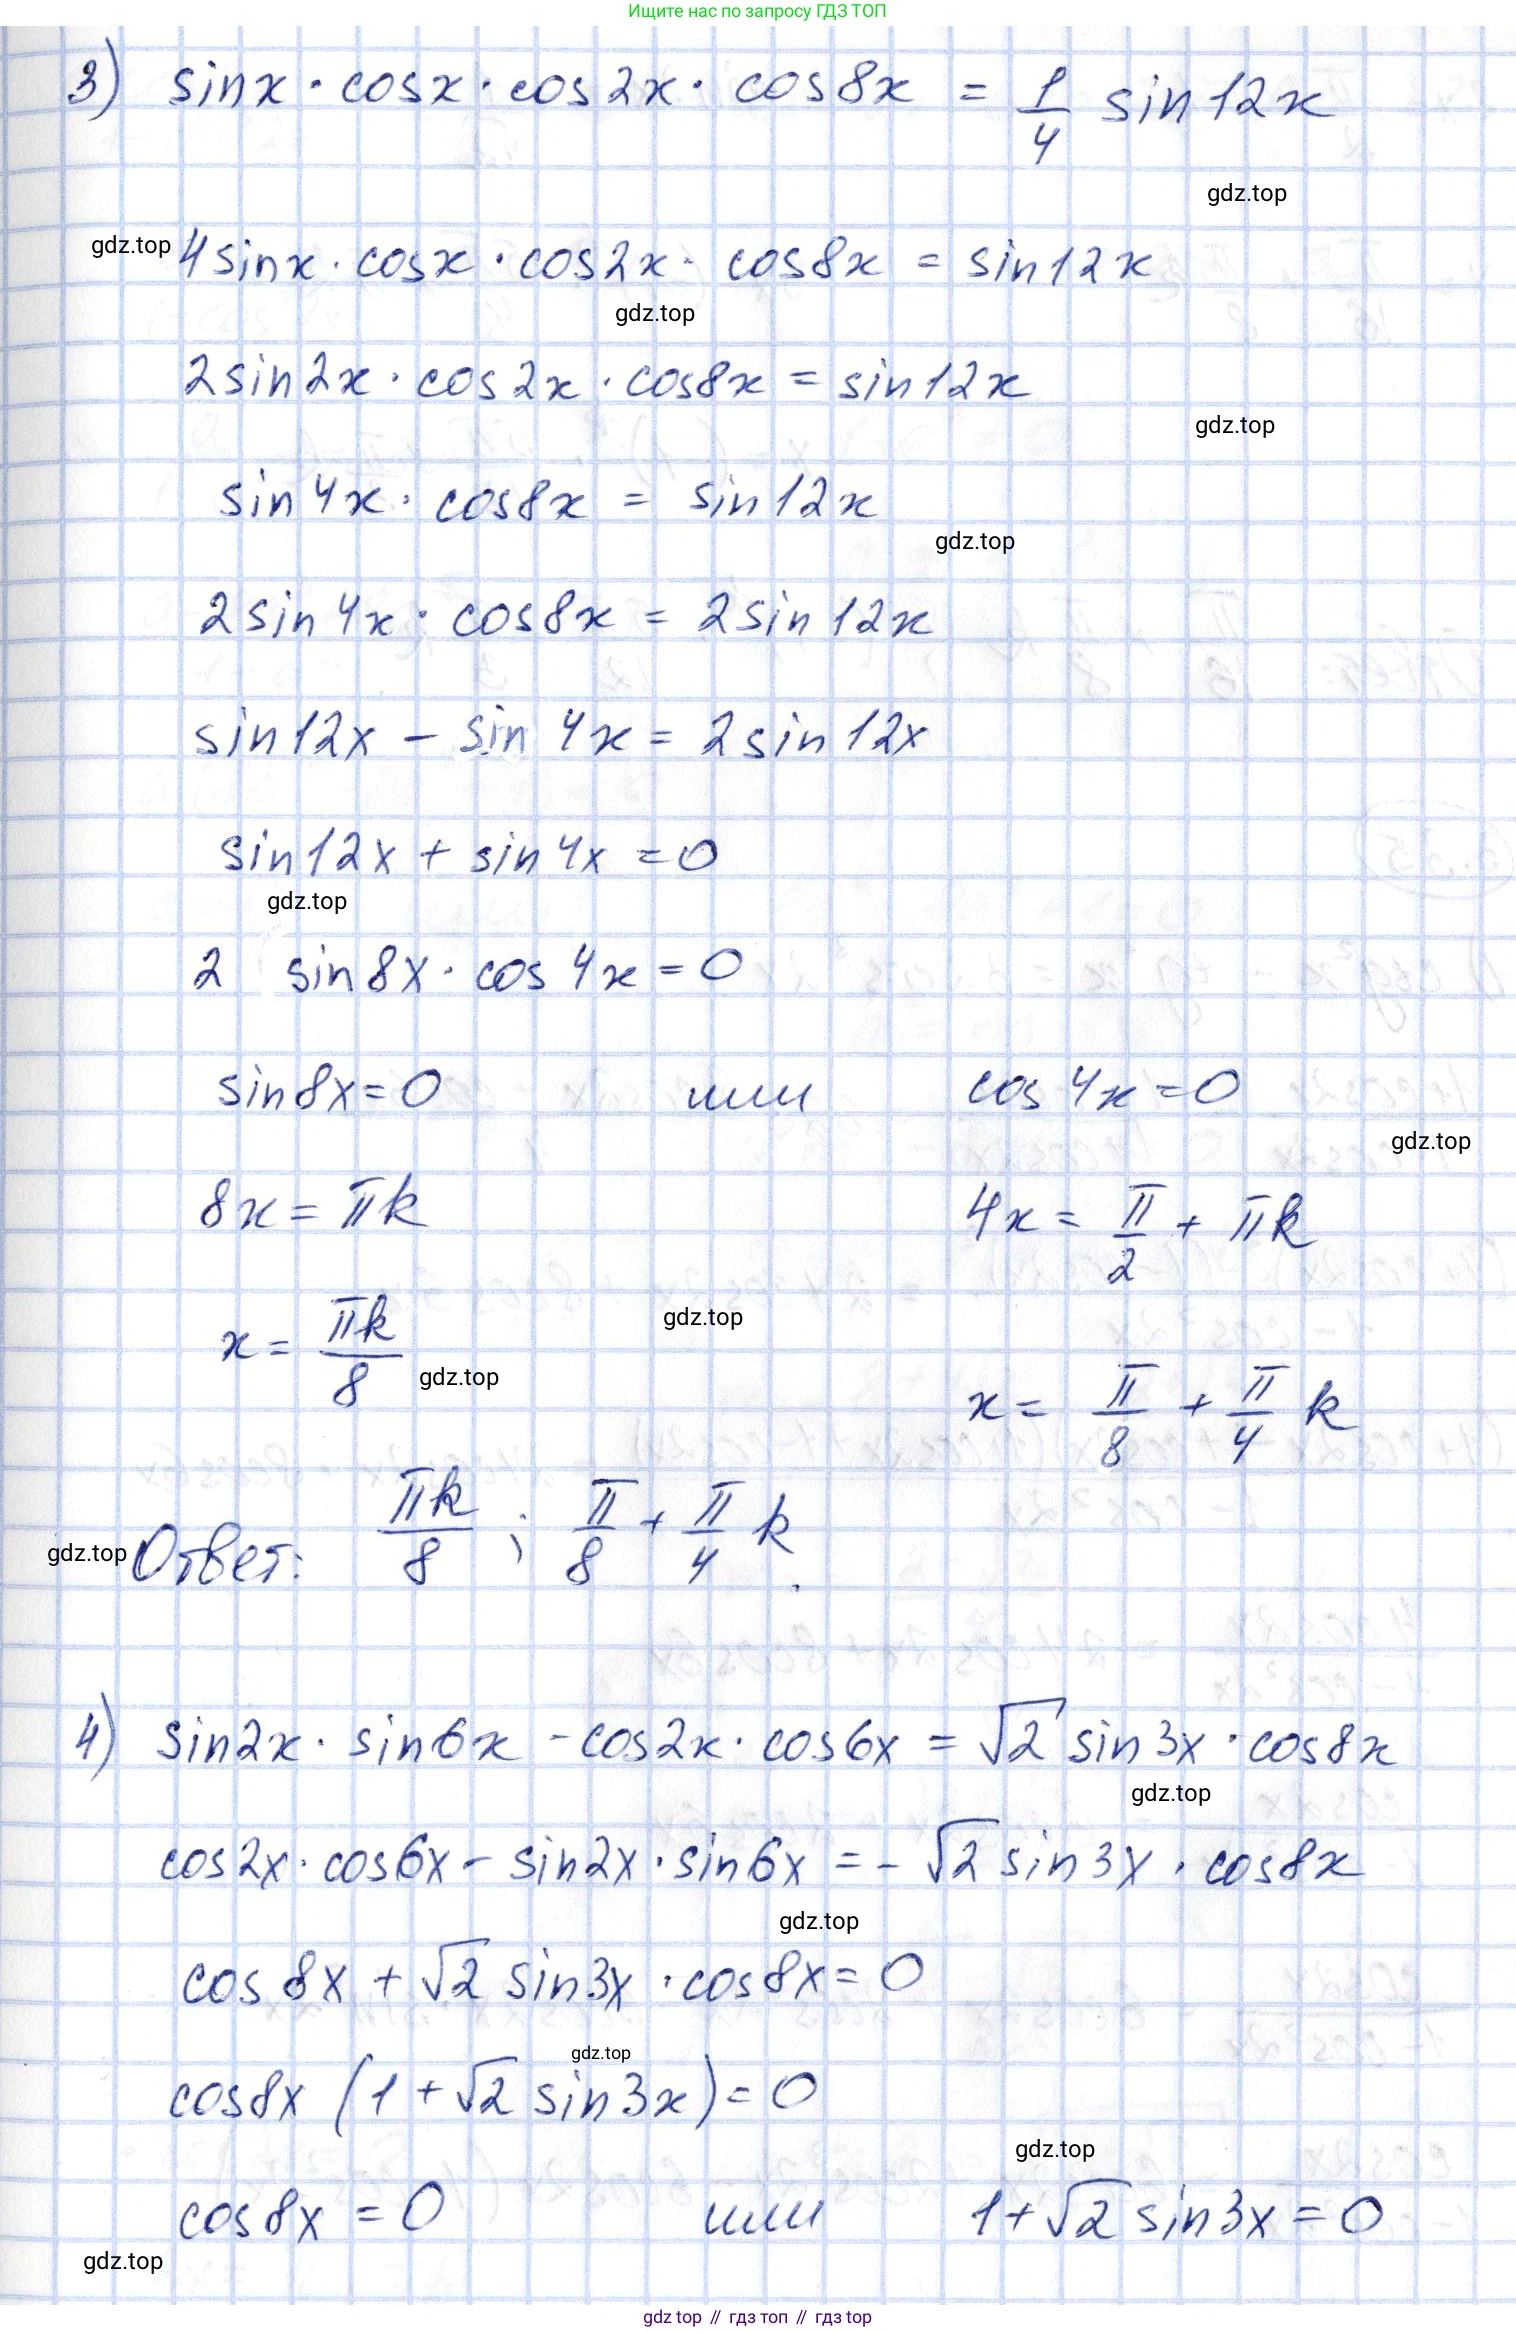 Ищите нас по запросу ГДЗ ТОП
3) sinx · cosx · cos2x · cos8x = 1/4 sin12x
gdz.top
gdz.top 4sinx · cosx · cos2x · cos8x = sin12x
gdz.top
2sin2x · cos2x · cos8x = sin12x
gdz.top
sin4x · cos8x = sin12x
gdz.top
2sin4x · cos8x = 2sin12x
sin12x - sin4x = 2sin12x
sin12x + sin4x = 0
gdz.top
2 sin8x · cos4x = 0
sin8x = 0 или cos4x = 0
gdz.top
8x = πk 4x = π/2 + πk
x = πk/8 gdz.top
gdz.top x = π/8 + π/4 k
gdz.top Ответ: πk/8 ; π/8 + π/4 k.
4) sin2x · sin6x - cos2x · cos6x = √2 sin3x · cos8x
gdz.top
cos2x · cos6x - sin2x · sin6x = - √2 sin3x · cos8x
gdz.top
cos8x + √2 sin3x · cos8x = 0
gdz.top
cos8x (1 + √2 sin3x) = 0
gdz.top
cos8x = 0 или 1 + √2 sin3x = 0
gdz.top
gdz top // гдз топ // гдз top